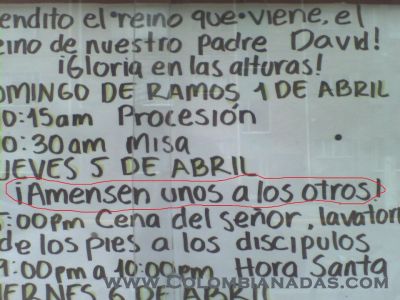 endito el reino que viene, el
eino de nuestro Padre David!
¡Gloria en las alturas!
OMINGO DE RAMOS, 1 DE ABRIL
0:15am Procesión
0:30am Misa
UEVES 5 DE ABRIL
¡Amensen unos a los otros!
5:00pm Cena del señor, lavator
de los pies a los discipulos
9:00pm a 10:00pm Hora Santa
www.Colombianadas.com
IERNES 6 DE ABRIL